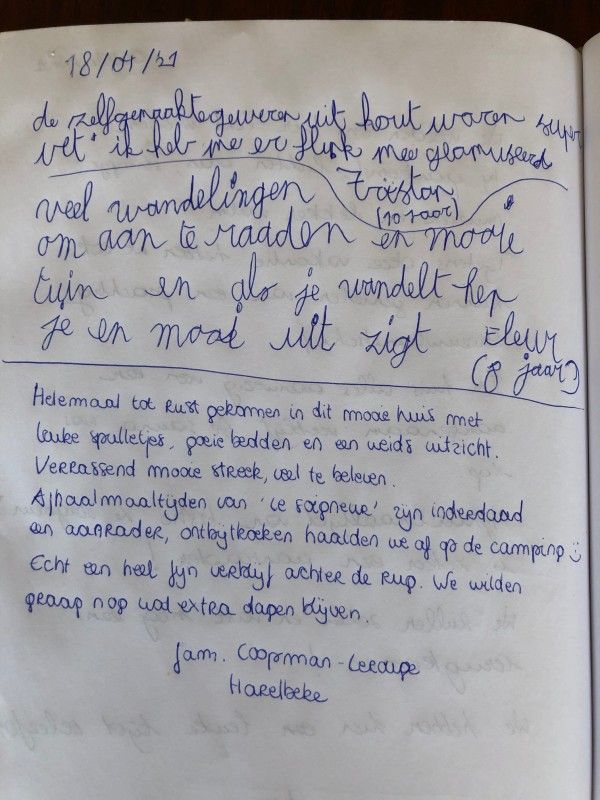 18/04/21
de zelfgemaakte geweren uit hout waren super
vet. ik heb me er flink mee geamuseerd
Tristan
(10 jaar)
veel wandelingen
om aan te raaden en mooie
tuin en als je wandelt hep
je en mooi uit zigt Fleur
(8 jaar)
Helemaal tot rust gekomen in dit mooie huis met
leuke spulletjes, goeie bedden en een weids uitzicht.
Verrassend mooie streek, veel te beleven.
Afhaalmaaltijden van 'le soigneur' zijn inderdaad
een aanrader, ontbijtkoeken haalden we af op de camping :)
Echt een heel fijn verblijf achter de rug. We wilden
graag nog wat extra dagen blijven.
fam. Coopman -
Harelbeke